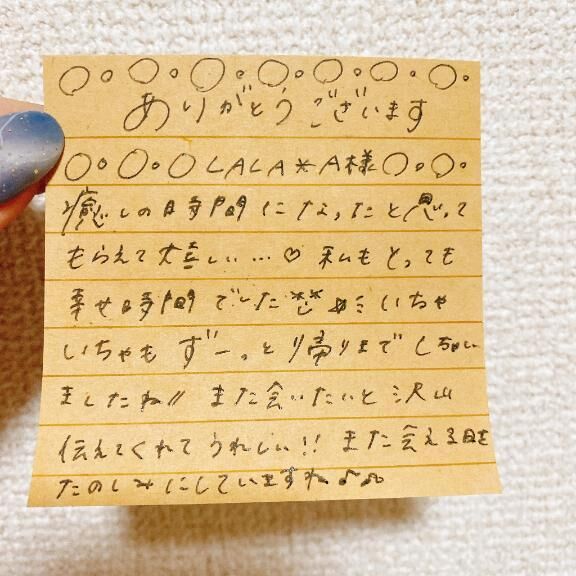 ありがとうございます
LALA*A様
癒しの時間になったと思って
もらえて大喜しい…♡ 私もとっても
幸せ時間でした いちゃ
いちゃもずーっと帰りまでしちゃい
ましたね!! また会いたいと沢山
伝えてくれてうれしい!! また会える日を
たのしみにしていますね♪♫